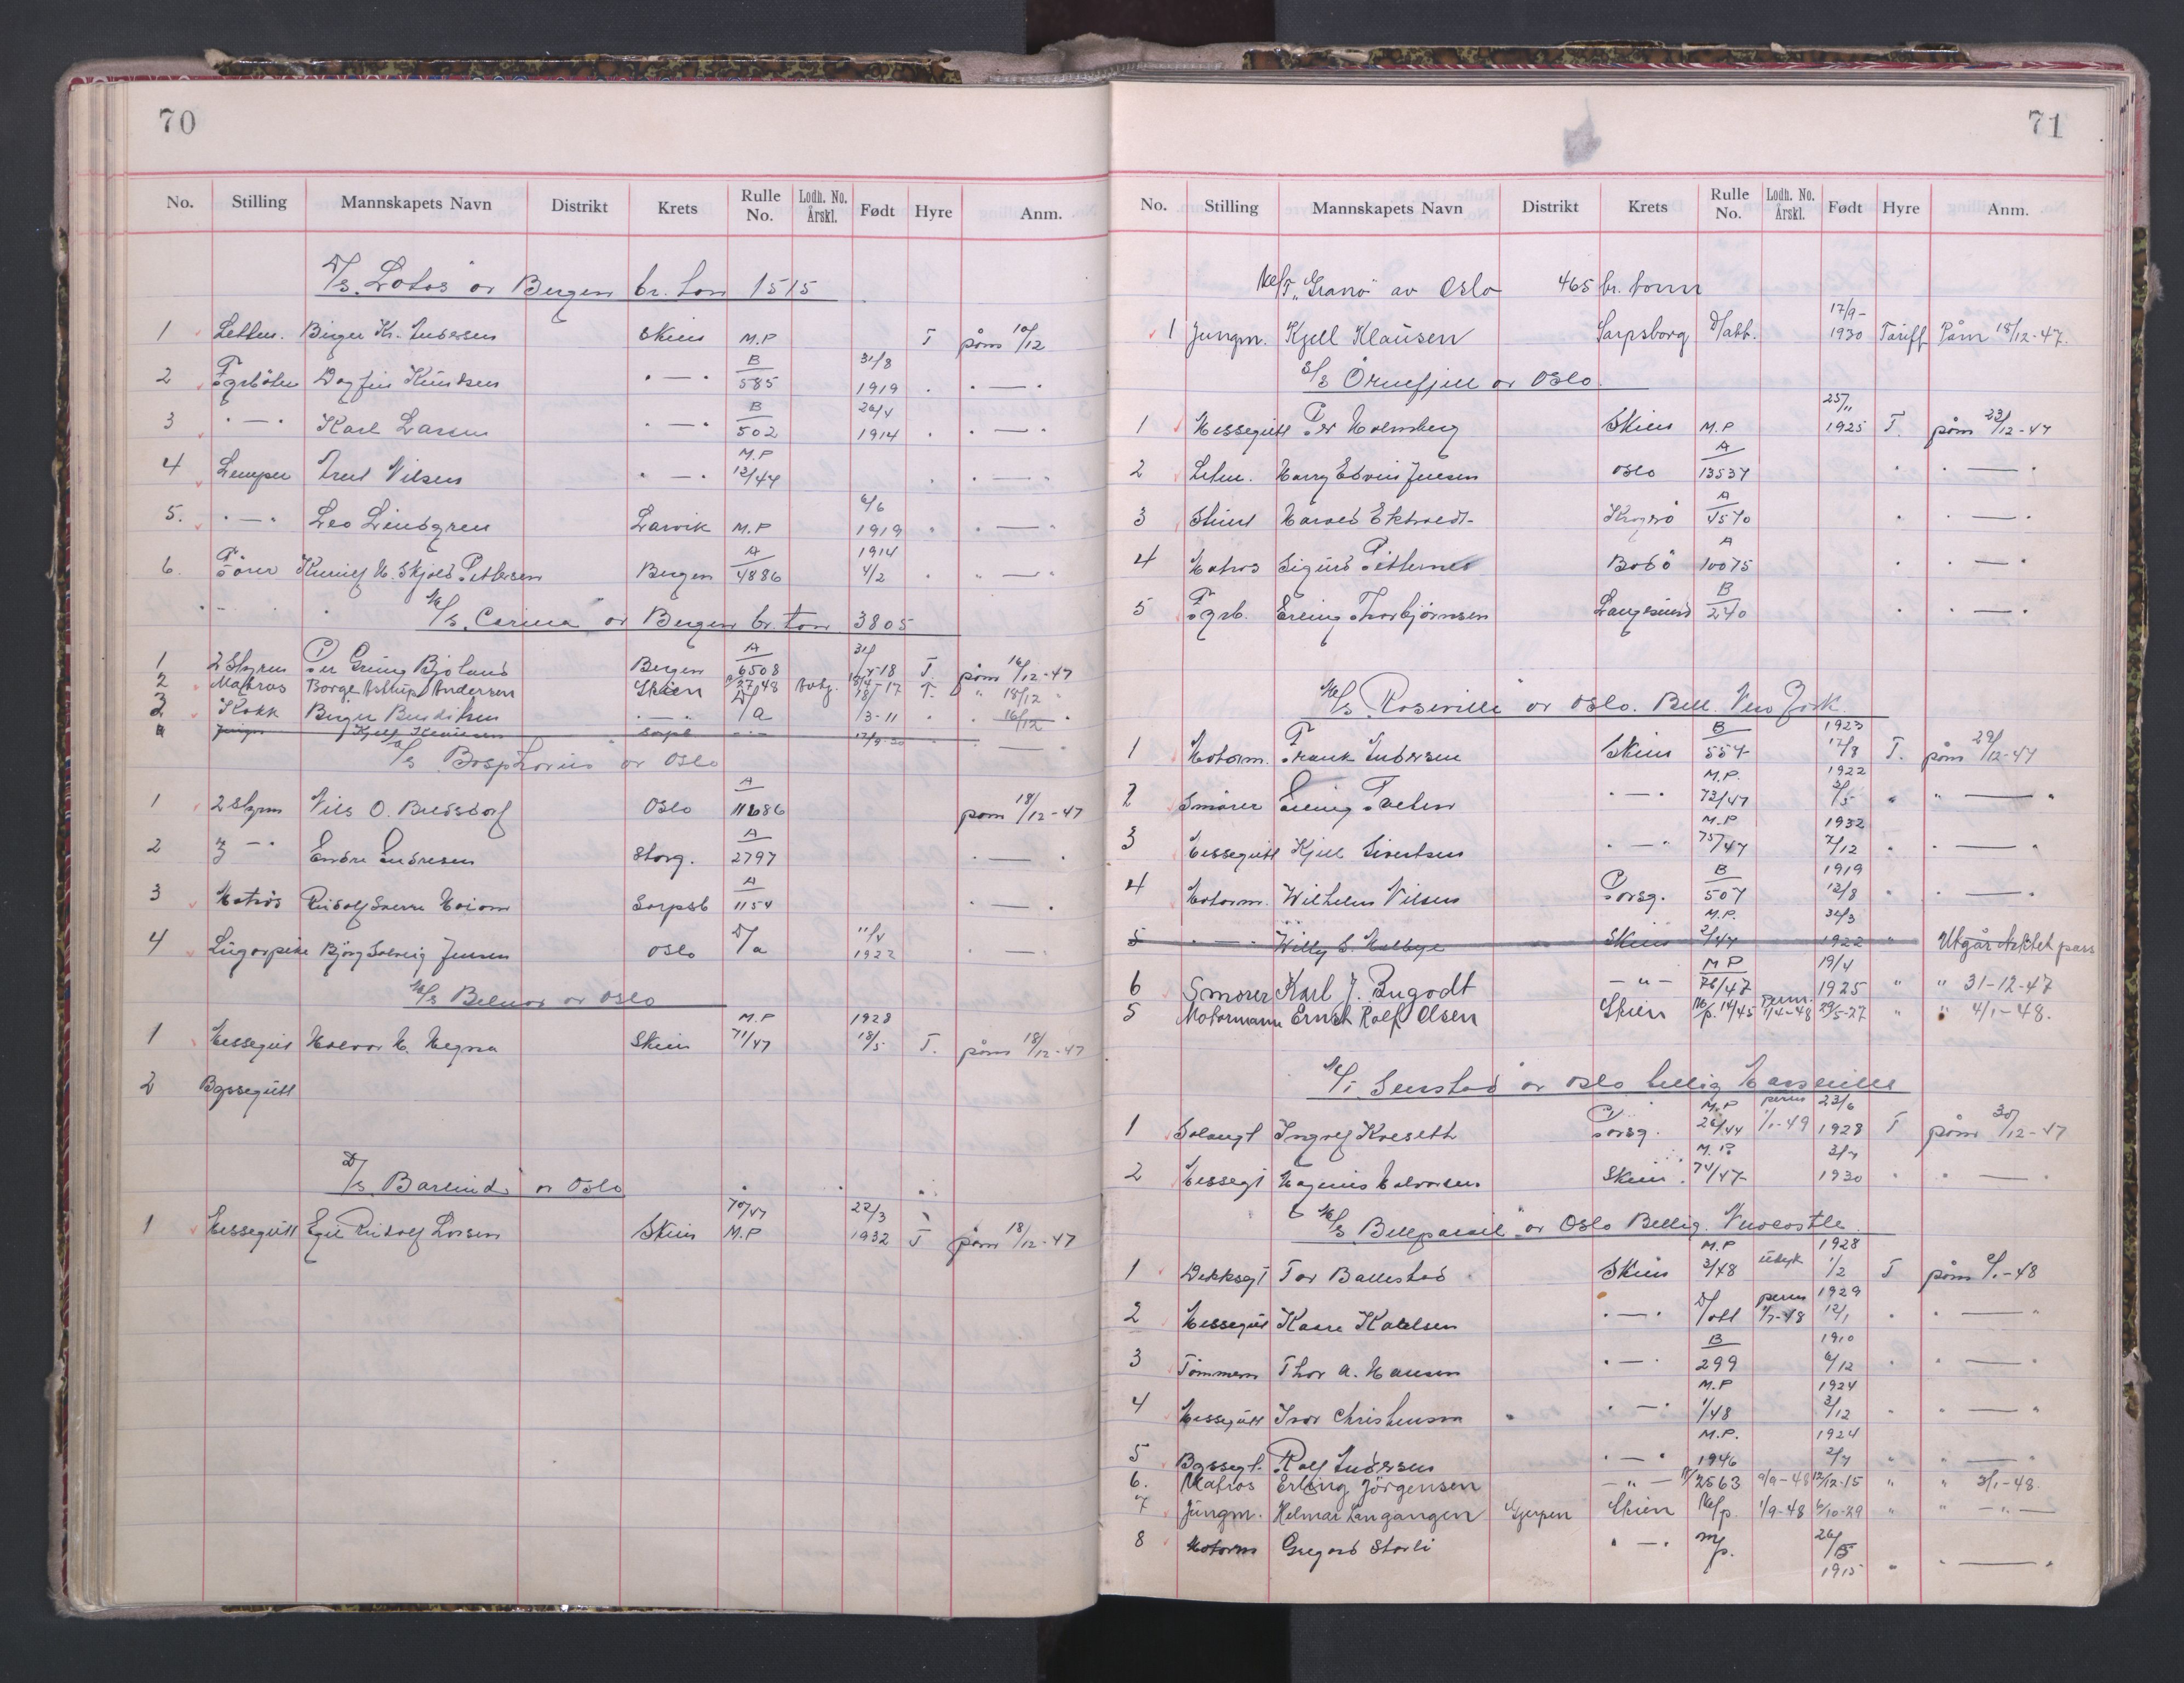 70
No. Stilling Mannskapets Navn Distrikt Krets Rulle No. Lodh. No. Årskl. Født Hyre Anm.
D/S "Lotos" av Bergen br. ton 1515
1 Lettm. Birger Kr. Andersen Skien M.P T påm 10/12
2 Fyrbøter Dagfin Knudsen " — " B 585 31/8 1919 " " — "
3 " — " Karl Larsen " — " B 502 26/4 1914 " " — "
4 Lemper Nilsen " — " M.P 12/44 " " — "
5. " — " Leo Lindgren Larvik M.P 6/6 1919 " " — "
6. Fører Skjold Pettersen Bergen A 4886 1914 4/2 " " — "
M/S "Carina" av Bergen br. tonn 3805
1 2 Styrm Per Grung Bergen A 6508 T. påm 16/12-47
2 Matros Børge Astrup Andersen Skien 2748 17 T. " 18/12 "
3 Kokk Birger " — " D/a /3-11 " " 16/12 "
4 Jungm Kjell Klausen Sarpb " — " 17/9-30 " " — "
D/S Bosphorus av Oslo
1 2 Styrm Nils O. Oslo A 11686 påm 18/12-47
2 3 — " Endre Endresen A 2797 " — "
3 Matros Rudolf Sverre Sarpsb A 1154 " — "
4 Lugarpike Bjørg Solveig Jensen Oslo D/a 11/4 1922 " — "
M/S Belnor av Oslo
1 Messegut Halvor H. Skien M.P 71/47 1928 18/5 T. påm 18/12-47
2 Byssegutt
D/S "Barlind" av Oslo
1 Messegutt Egil Rudolf Larsen Skien 70/47 M.P 22/3 1932 T påm 18/12-47
71
No. Stilling Mannskapets Navn Distrikt Krets Rulle No. Lodh. No. Årskl. Født Hyre Anm.
M/T "Granö" av Oslo 465 br. tonn
1 Jungm. Kjell Klausen Sarpsborg D/att. 17/9- 1930 Tariff Påm 18/12-47.
S/S Ørnefjell av Oslo
1 Messegutt Per Holmberg Skien M.P 25/11 1925 T. påm 23/12-47
2 Letm. Harry Edvin Jensen Oslo A 13537 " " — "
3 Harald Kragerø A 4570 " " — "
4 Matros Sigurd Bodö A 10075 " " — "
5 Fyrb. Erling Thorbjørnsen Langesund B 240 " " — "
M/S "Roseville" av Oslo. Bell. New York.
1 Motorm. Frank Andersen Skien B 554 1923 17/8 T. påm 29/12-47
2 Smører Erling " — " M.P. 73/47 1922 3/5 " " — "
3 Messegutt Kjell Sivertsen " — " M.P 75/47 1932 7/12 " " — "
4 Motorm. Wilhelm Nilsen Porsg. B 507 1919 12/8 " " — "
5 " — " Willy Skien M.P. 2/47 1922 " Utgår pass
6 Smører Karl J. Bugodt — " — M P 76/47 19/4 1925 " " 31-12-47
5 Motormann Ernst Rolf Olsen Skien M/p. 14/45 perm. 1/4-48 29/5-27 " " 4/1-48.
M/T "Senstad" av Oslo bellig Marseille
1 Salongt Ingolf Porsg. M.P 26/44 perm 1/1-49 23/6 1928 T påm 30/12-47
2 Messegt Magnus Halvorsen Skien M.P. 74/47 1930 " " — "
M/S "Belleparail" av Oslo Bellig. Newcastle.
1 Dekksgt Tor Ballestad Skien M.P 3/48 1928 1/2 T påm 2/1-48
2 Messegut Kaare " — " D/att perm 1/7-48 1929 12/1 " " — "
3 Tømmerm Thor A. Hansen " — " B 299 1910 6/12 " " — "
4 Messegutt Ivar Christensen " — " M.P 1/48 1924 3/12 " " — "
5 Byssegt. Rolf Andersen " — " M.P. 1946 1924 2/7 " " — "
6. Matros Erling Jörgensen — " — 2563 9/9-48 12/12-15 " " 3/1-48.
7 Jungm. Helmar Langangen Gjerpen Skien M/p. 1/9-48 6/10-29 " " — " —
8 Motorm Gregard Storli " — " M/p. 26/5 1915 " " — "